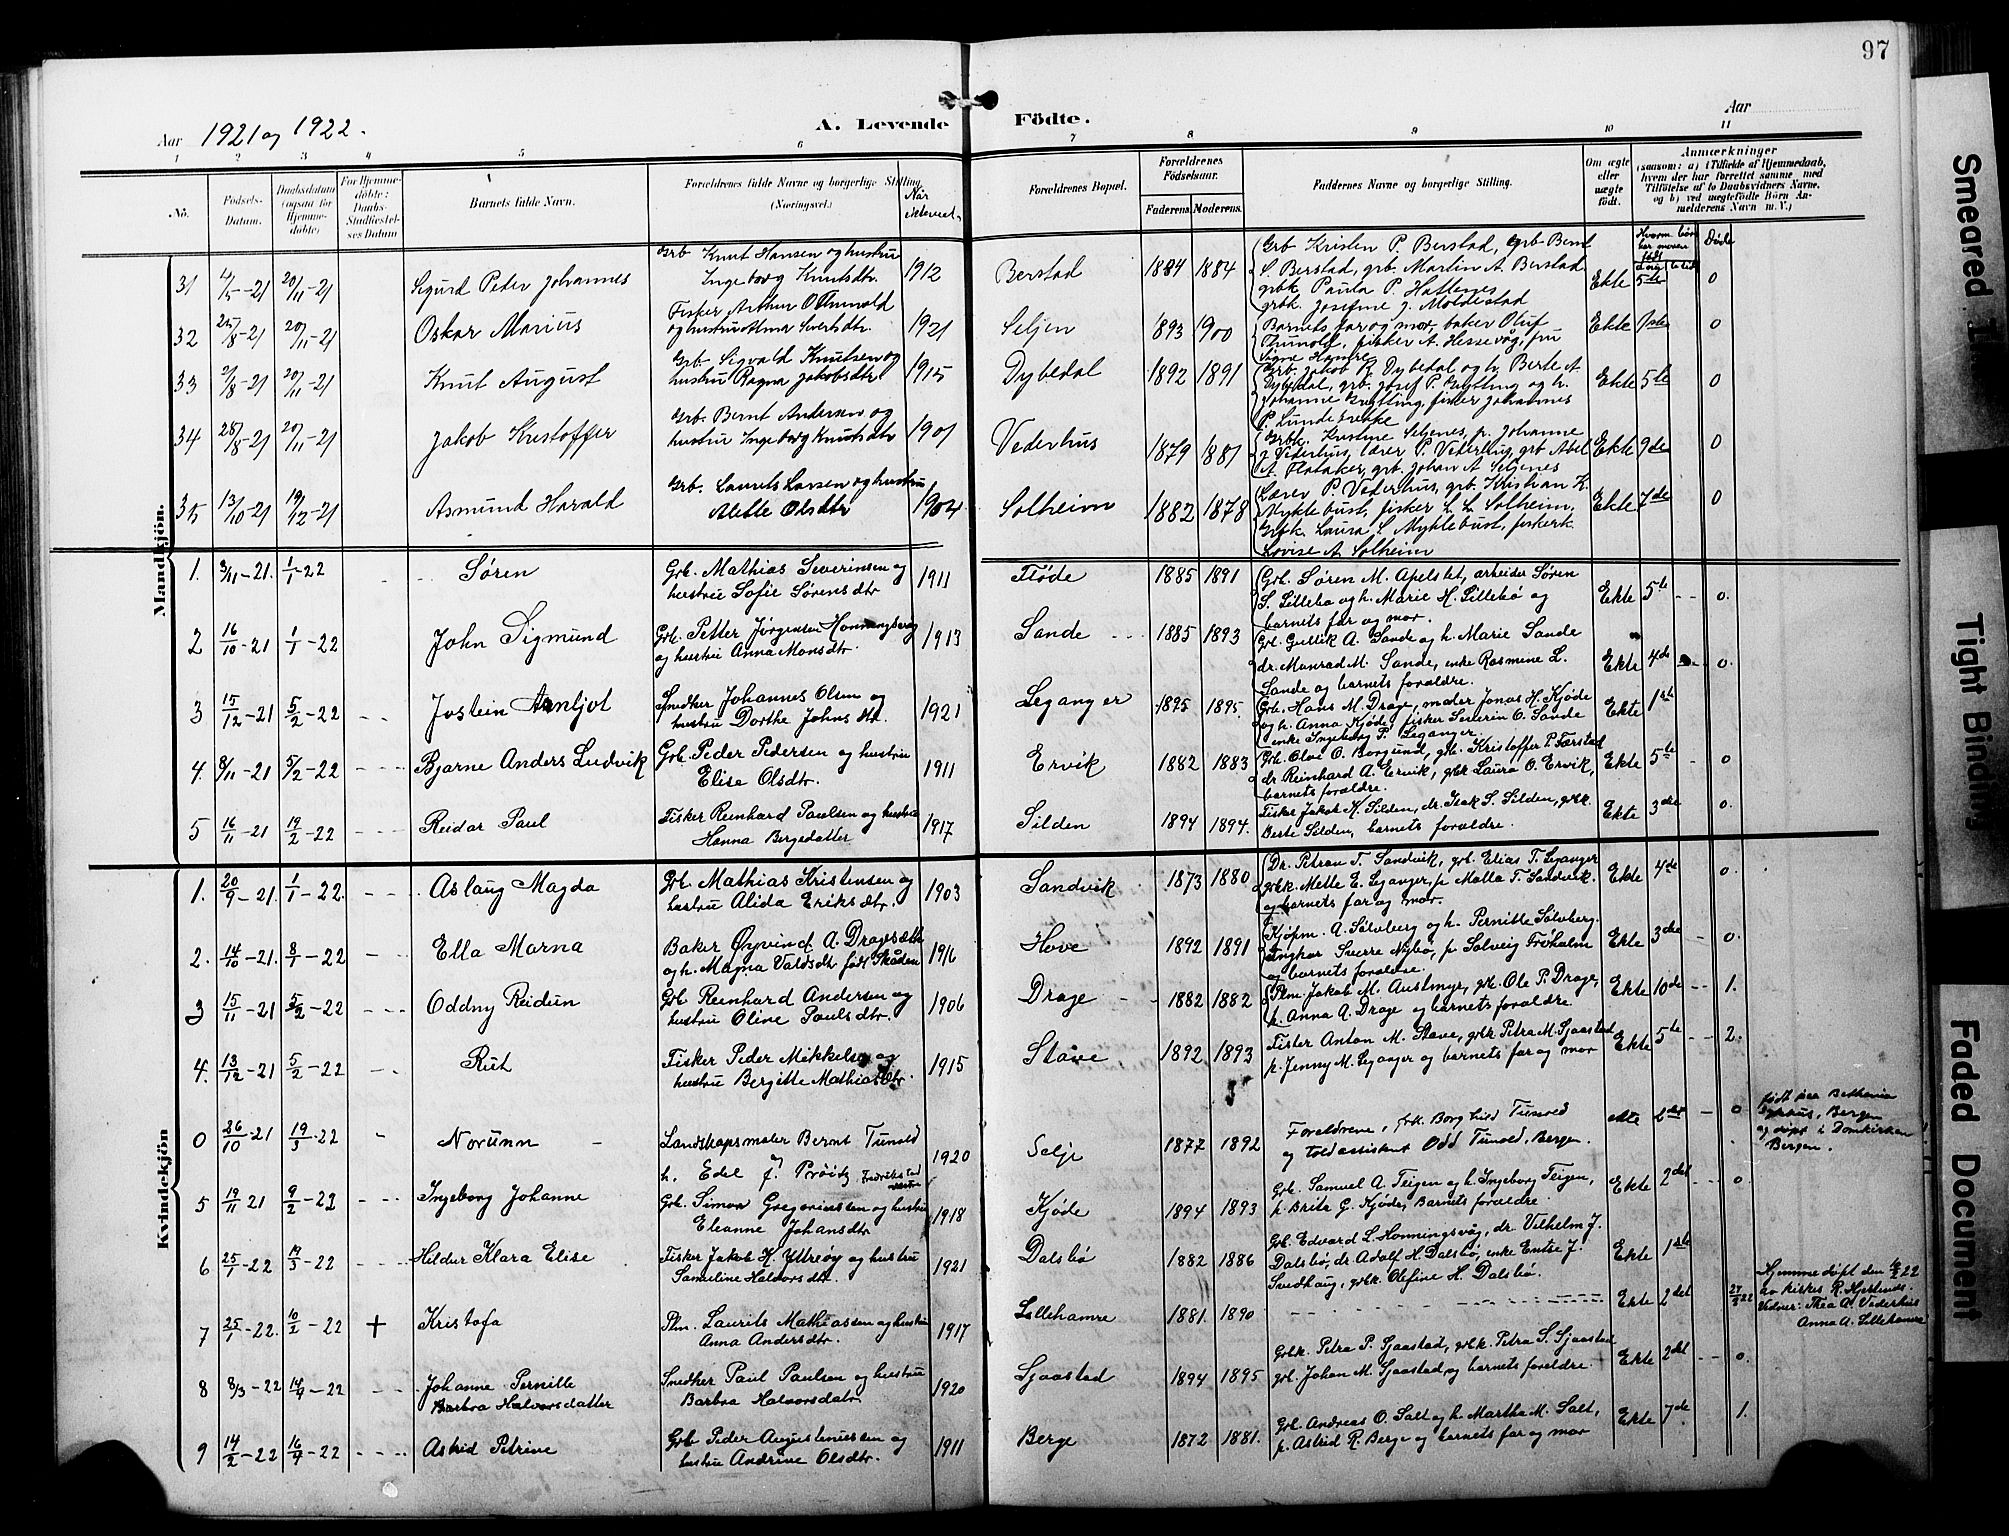 97
Aar 1921 og 1922.
A. Levende Födte.
Aar
1 2 3 4 5 6 7 8 9 10 11
No.
Födsels-Datum.
Daabsdatum (ogsaa for Hjemme-döbte)
For Hjemme-döbte: Daabs-Stadfæstel-ses Datum
Barnets fulde Navn.
Forældrenes fulde Navne og borgerlige Stilling (Næringsvei.)
Forældrenes Bopæl.
Forældrenes Födselsaar.
Faderens. Moderens.
Faddernes Navne og borgerlige Stilling.
Om ægte eller uægte födt.
Anmærkninger
(saasom: a) i Tilfælde af Hjemmedaab,
hvem der har forrettet samme med
Tilföielse af to Daabsvidners Navne,
og b) ved uægtefödte Börn An-
melderens Navn m. V.)
Døde
Mandkjön.
31 4/5-21 20/11-21 Sigurd Peter Johannes Grb Knut Hansen og hustru 1912 Berstad 1884 1884 Grb Kristen P. Berstad, Grb Bernt Ekte 5te 0
Ingeborg Knutsdtr. S. Berstad, grb. Martin A. Berstad
grbk Paula P. Hattenes
grbk. Josefine J. Moldestad
32 25/8-21 20/11-21 Oskar Marius Fisker Arthur O Thunold 1921 Seljen 1893 1900 Barnets far og mor, baker Oluf Ekte 1ste 0
og hustru Alma Sivertsdtr. Thunold, fisker A. Hessevåg, fru
Signe Hamre
33 2/8-21 20/11-21 Knut August Grb. Sigvald Knutsen og 1915 Dybedal 1892 1891 Grb. Jakob R. Dybedal og h. Berte A. Ekte 5te 0
hustru Ragna Jakobsdtr. Dybedal, grb. Josef P. og h.
Johanne fisker Johannes
P. Lunde
34 28/8-21 20/11-21 Jakob Kristoffer Grb. Bernt Andersen og 1901 Vederhus 1879 1881 Grbk. Kristine Seljenes, p. Johanne Ekte 9de 0
hustru Ingeborg Knutsdtr J Vederhus, lærer P. Vederhus, grb Abel
A. Flataker, grb. Johan A Seljenes
35 13/10-21 19/12-21 Asmund Harald Grb. Laurits Larsen og hustru 1904 Solheim 1882 1878 Lærer P. Vederhus, grb. Kristian K. Ekte 7de 0
Alette Olsdtr Myklebust, fisker L. L. Solheim,
Grbk Laura S. Myklebust, fiskerk.
Lovise A. Solheim
1. 3/11-21. 1/1-22 Søren Grb. Mathias Severinsen og 1911 Fløde 1885 1891 Grb. Søren M. Apelset, arbeider Søren Ekte 5te 0.
hustru Sofie Sørensdtr S. Lillebø og h. Marie H. Lillebø og
barnets far og mor.
2 16/10-21 1/1-22 John Sigmund Grb. Petter Jørgensen Honningsvag 1913 Sande 1885 1893 Grb. Gullik A. Sande og h. Marie Sande Ekte 4de 0.
og hustru Anna Monsdtr. dr. Monrad M. Sande, enke Rasmine L.
Sande og barnets forældre.
3 15/12-21 5/2-22 Jostein Arnljot Snedker Johannes Olsen og 1921 Leganger 1895 1895. Grb. Hans M. Drage, maler Jonas H. Kjøde Ekte 1ste
hustru Dorthe Johnsdtr. og h. Anna Kjøde, fisker Severin O. Sande
enke Ingeborg P. Leganger.
4. 8/11-21 5/2-22 Bjarne Anders Ludvik Grb. Peder Pedersen og hustru 1911 Ervik 1882 1883 Grb. Olai O. Borgund, grb. Kristoffer P. Førstad Ekte 5te 0
Elise Olsdtr. dr. Reinhard A. Ervik, grbk Laura O. Ervik,
barnets forældre.
5 16/11-21 19/2-22 Reidar Paul Fisker Reinhard Paulsen og hustru 1917 Silden 1894 1894. Fisker Jakob K. Silden, dr. Isak S. Silden, grbk. Ekte 3die 0.
Hanna Bergsdatter Berte Silden, barnets forældre.
Kvindekjön
1. 20/9-21. 1/1-22. Aslaug Magda Grb. Mathias Kristensen og 1903 Sandvik 1873 1880 Dr. Petran T. Sandvik, grb. Elias T. Leganger Ekte 4de 0.
hustru Alida Eriksdtr. grbk. Mette E. Leganger, p Malla T. Sandvik.
og barnets far og mor.
2. 14/10-21. 8/1-22 Ella Marna Baker Øyvind A. Dragesæth 1916 Hove 1892 1891 Kjøpm. A. Sølvberg og h. Pernille Sølvberg. Ekte 3die 0.
og h. Magna Valdsdtr. født Skåden Ungkar Sverre Nybø, p Solveig Trøholm
og barnets forældre.
3 15/11-21 5/2-22 Oddny Reidun Grb Reinhard Andersen og 1906 Drage 1882 1882 Plm. Jakob M. Austmyr, grb. Ole P. Drage, Ekte 10de 1.
hustru Oline Paulsdtr. p. Anna A. Drage og barnets forældre
4. 13/12-21 5/2-22 Rut Fisker Peder Mikkelsen og 1915 Stave 1892 1893 Fisker Anton M. Stave, grbk Petra M. Sjaastad Ekte 5te 2.
hustru Bergitte Mathiasdtr. p. Jenny M. Leganger og barnets far og mor
0 26/10-21 19/3-22 Norunn Landskapsmaler Bernt Tunold 1920 Selje 1877 1892 Forældrene, frk. Borghild Tunold ekte 2det 0 født paa Bethania
h. Edel f. Prøitz Fredrikstad og toldassistent Odd Tunold, Bergen. sykehus, Bergen
og døpt i Domkirken
Bergen.
5 19/11 21 9/2-22 Ingeborg Johanne Grb. Simon Gregoriussen og hustru 1918 Kjøde 1894 1893 Grb. Samuel A. Teigen og h. Ingeborg Teigen, Ekte 2det 0
Eleanne Johansdtr. p. Brita G. Kjøde, Barnets forældre.
6 25/1-22 19/3-22 Hildur Klara Elise Fisker Jakob H. Yttrøy og hustru 1921 Dalsbø 1882 1886 Grb. Edvard L. Honningsvåg, dr. Vilhelm J. Ekte 1ste
Samuline Halvorsdtr. Dalsbø, dr. Adolf H. Dalsbø, enke J.
Svedhaug, grbk. Olefine H. Dalsbø.
7 25/1-22. 10/2-22 + Kristofa Plm. Laurits Mathiassen og hustru 1917 Lillehamre 1881. 1890 Ekte 2det 22 Hjemmedøpt den 22
Anna Andersdtr. av kirkes. R. Hjertnes.
Vidner: Thea A. Vederhus
Anna A. Lillehamre
8 8/3-22 14/4-22 Johanne Pernille Snedker Paul Paulsen og hustru 1920 Sjaastad 1894 1895 Grbk. Petra P. Sjaastad, grbk. Petra S. Sjaastad Ekte 2det 0.
Barbra Halvorsdatter Barbra Halvorsdatr grb. Johan M. Sjaastad, og barnets forældre
9 14/2-22 16/4-22 Astrid Petrine Grb Peder Augustinussen og 1911 Berge 1872 1881. Grb. Andreas O. Salt og h. Martha M. Salt, Ekte 7de 1.
hustru Andrine Olsdtr. p. Astrid R. Berge og barnets far og mor
Smeared
Tight Binding
Faded Document